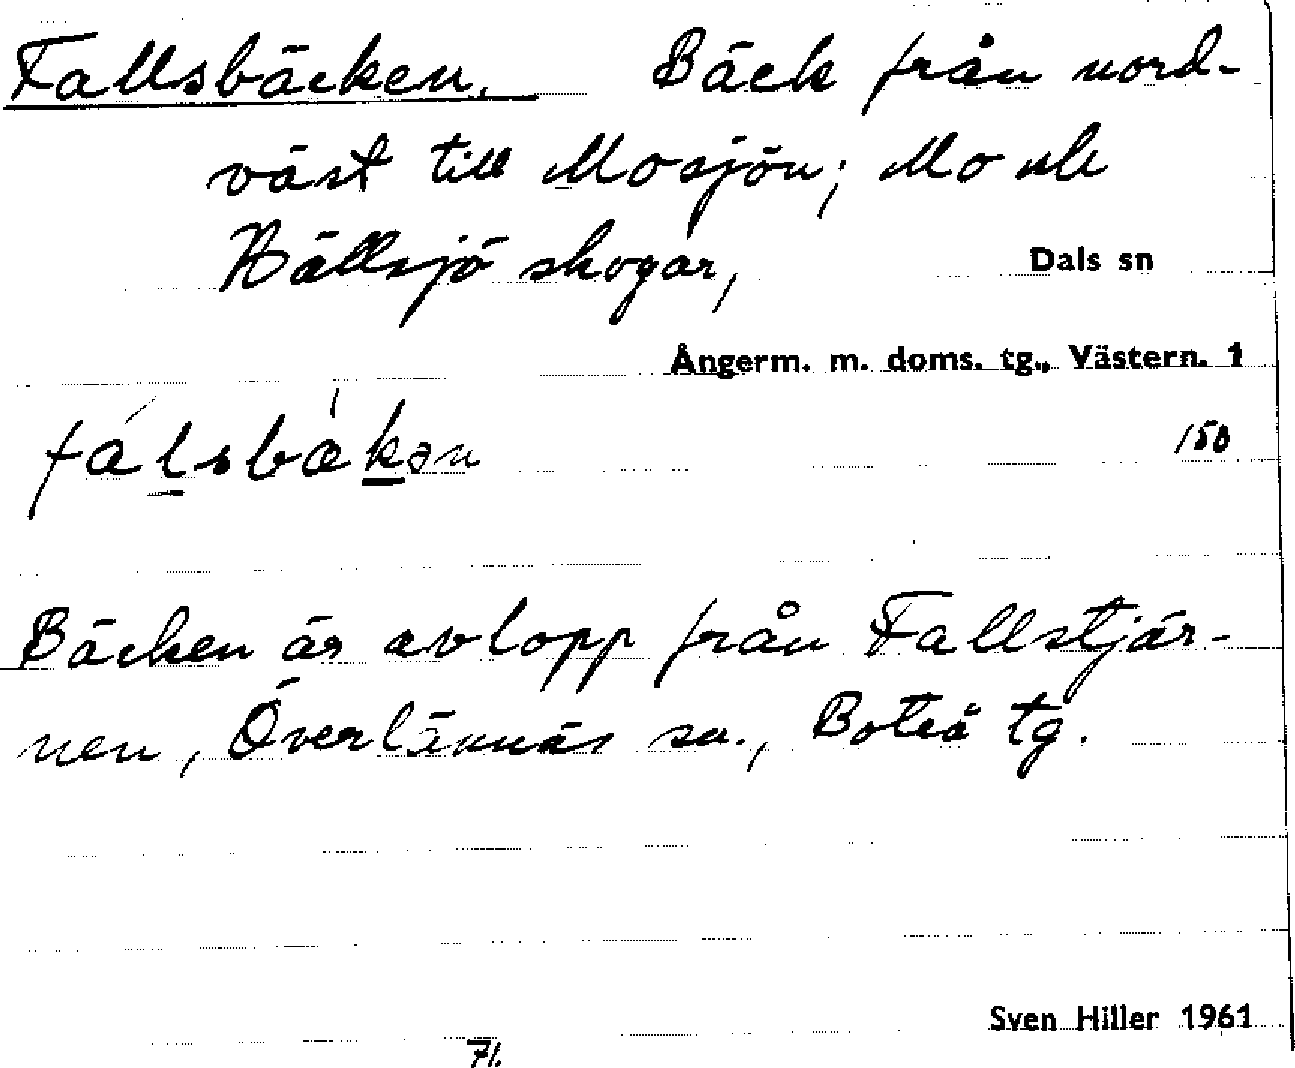 Fallsbäcken. Bäck från nord-
väst till Mosjön; Mo och
Hällsjö skogar, Dals sn
Ångerm. m. doms. tg., Västern. 1
fálsbækən 150
Bäcken är avlopp från Fallstjär-
nen, Överlännäs sn., Boteå tg.
Sven Hiller 1961
71.